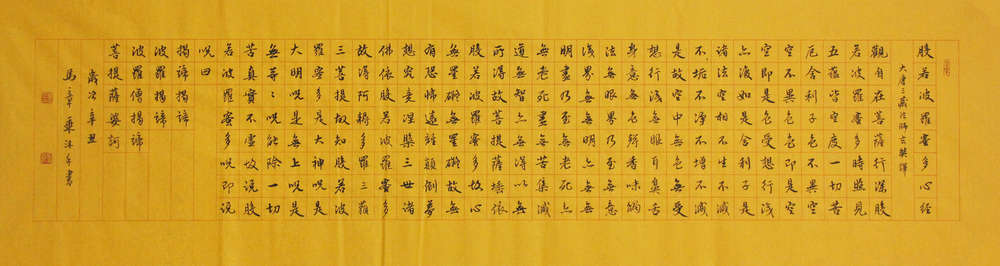 般若波羅蜜多心經
大唐三藏法師玄奘譯
觀自在菩薩行深般
若波羅蜜多時照見
五蘊皆空度一切苦
厄舍利子色不異空
空不異色色即是空
空即是色受想行識
亦復如是舍利子是
諸法空相不生不滅
不垢不淨不增不減
是故空中無色無受
想行識無眼耳鼻舌
身意無色聲香味觸
法無眼界乃至無意
識界無無明亦無無
明盡乃至無老死亦
無老死盡無苦集滅
道無智亦無得以無
所得故菩提薩埵依
般若波羅蜜多故心
無罣礙無罣礙故無
有恐怖遠離顛倒夢
想究竟涅槃三世諸
佛依般若波羅蜜多
故得阿耨多羅三藐
三菩提故知般若波
羅蜜多是大神咒是
大明咒是無上咒是
無等〻咒能除一切
苦真實不虛故說般
若波羅蜜多咒即說
咒曰
揭諦揭諦
波羅揭諦
波羅僧揭諦
菩提薩婆訶
歲次辛丑
馬章秉沐手書